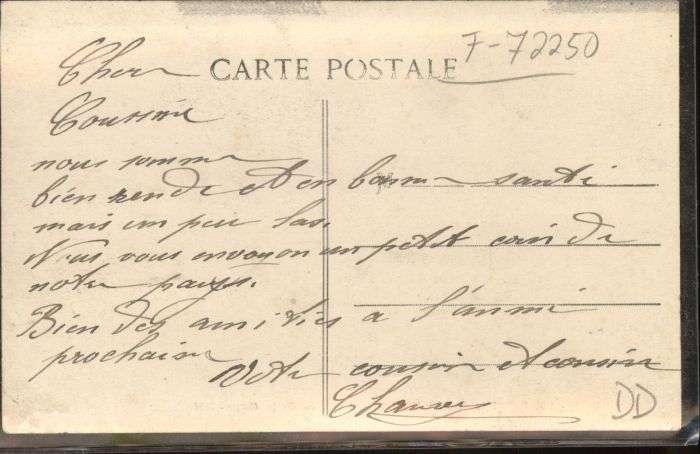 F-72250
CARTE POSTALE
Cher
Coussine
nous somme
bien rende et en bonne santé
mais un peu las.
Nous vous envoyon un petit coin de
notre pays.
Bien des amitiés a l'anné
prochaine
Votre cousin et cousine
DD